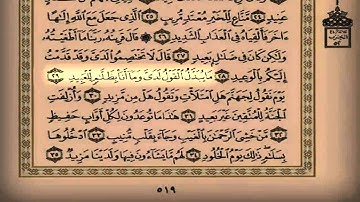 عَنِيدٍ ٢٤ مَّنَّاعٍ لِّلْخَيْرِ مُعْتَدٍ مُّرِيبٍ ٢٥ ٱلَّذِى جَعَلَ مَعَ ٱللَّهِ إِلَٰهًا
ءَاخَرَ فَأَلْقِيَاهُ فِى ٱلْعَذَابِ ٱلشَّدِيدِ ٢٦ قَالَ قَرِينُهُۥ رَبَّنَا مَآ أَطْغَيْتُهُۥ
وَلَٰكِن كَانَ فِى ضَلَٰلٍۭ بَعِيدٍ ٢٧ قَالَ لَا تَخْتَصِمُوا۟ لَدَىَّ وَقَدْ قَدَّمْتُ
إِلَيْكُم بِٱلْوَعِيدِ ٢٨ مَا يُبَدَّلُ ٱلْقَوْلُ لَدَىَّ وَمَآ أَنَا۠ بِظَلَّٰمٍ لِّلْعَبِيدِ ٢٩
يَوْمَ نَقُولُ لِجَهَنَّمَ هَلِ ٱمْتَلَأْتِ وَتَقُولُ هَلْ مِن مَّزِيدٍ ٣٠ وَأُزْلِفَتِ
ٱلْجَنَّةُ لِلْمُتَّقِينَ غَيْرَ بَعِيدٍ ٣١ هَٰذَا مَا تُوعَدُونَ لِكُلِّ أَوَّابٍ حَفِيظٍ
٣٢ مَّنْ خَشِىَ ٱلرَّحْمَٰنَ بِٱلْغَيْبِ وَجَآءَ بِقَلْبٍ مُّنِيبٍ ٣٣ ٱدْخُلُوهَا
بِسَلَٰمٍ ذَٰلِكَ يَوْمُ ٱلْخُلُودِ ٣٤ لَهُم مَّا يَشَآءُونَ فِيهَا وَلَدَيْنَا مَزِيدٌ ٣٥
٥١٩